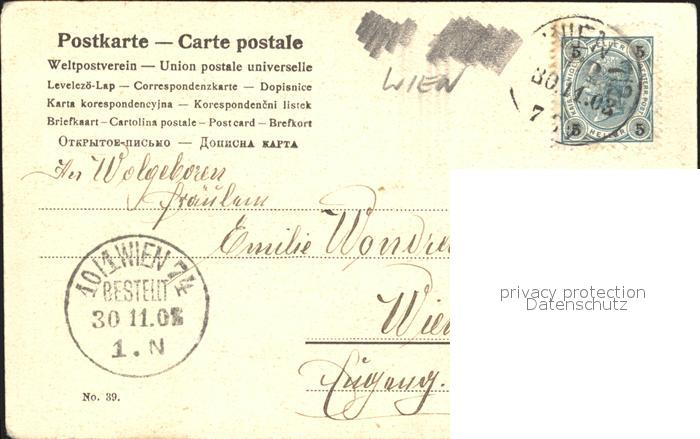 Postkarte — Carte postale
Weltpostverein — Union postale universelle
Levelező-Lap — Correspondenzkarte — Dopisnice
Karta korespondencyjna — Korespondenční lístek
Briefkaart - Cartolina postale - Postcard - Brefkort
Открытое-письмо — Дописна карта
WIEN
WIEN
30.11.03
7
5 5
HELLER
5 5
HELLER
Wolgeboren
Fräulein
Emilie
Wien
10/1 WIEN 74
BESTELLT
30 11.03
1. N
No. 39.
privacy protection
Datenschutz